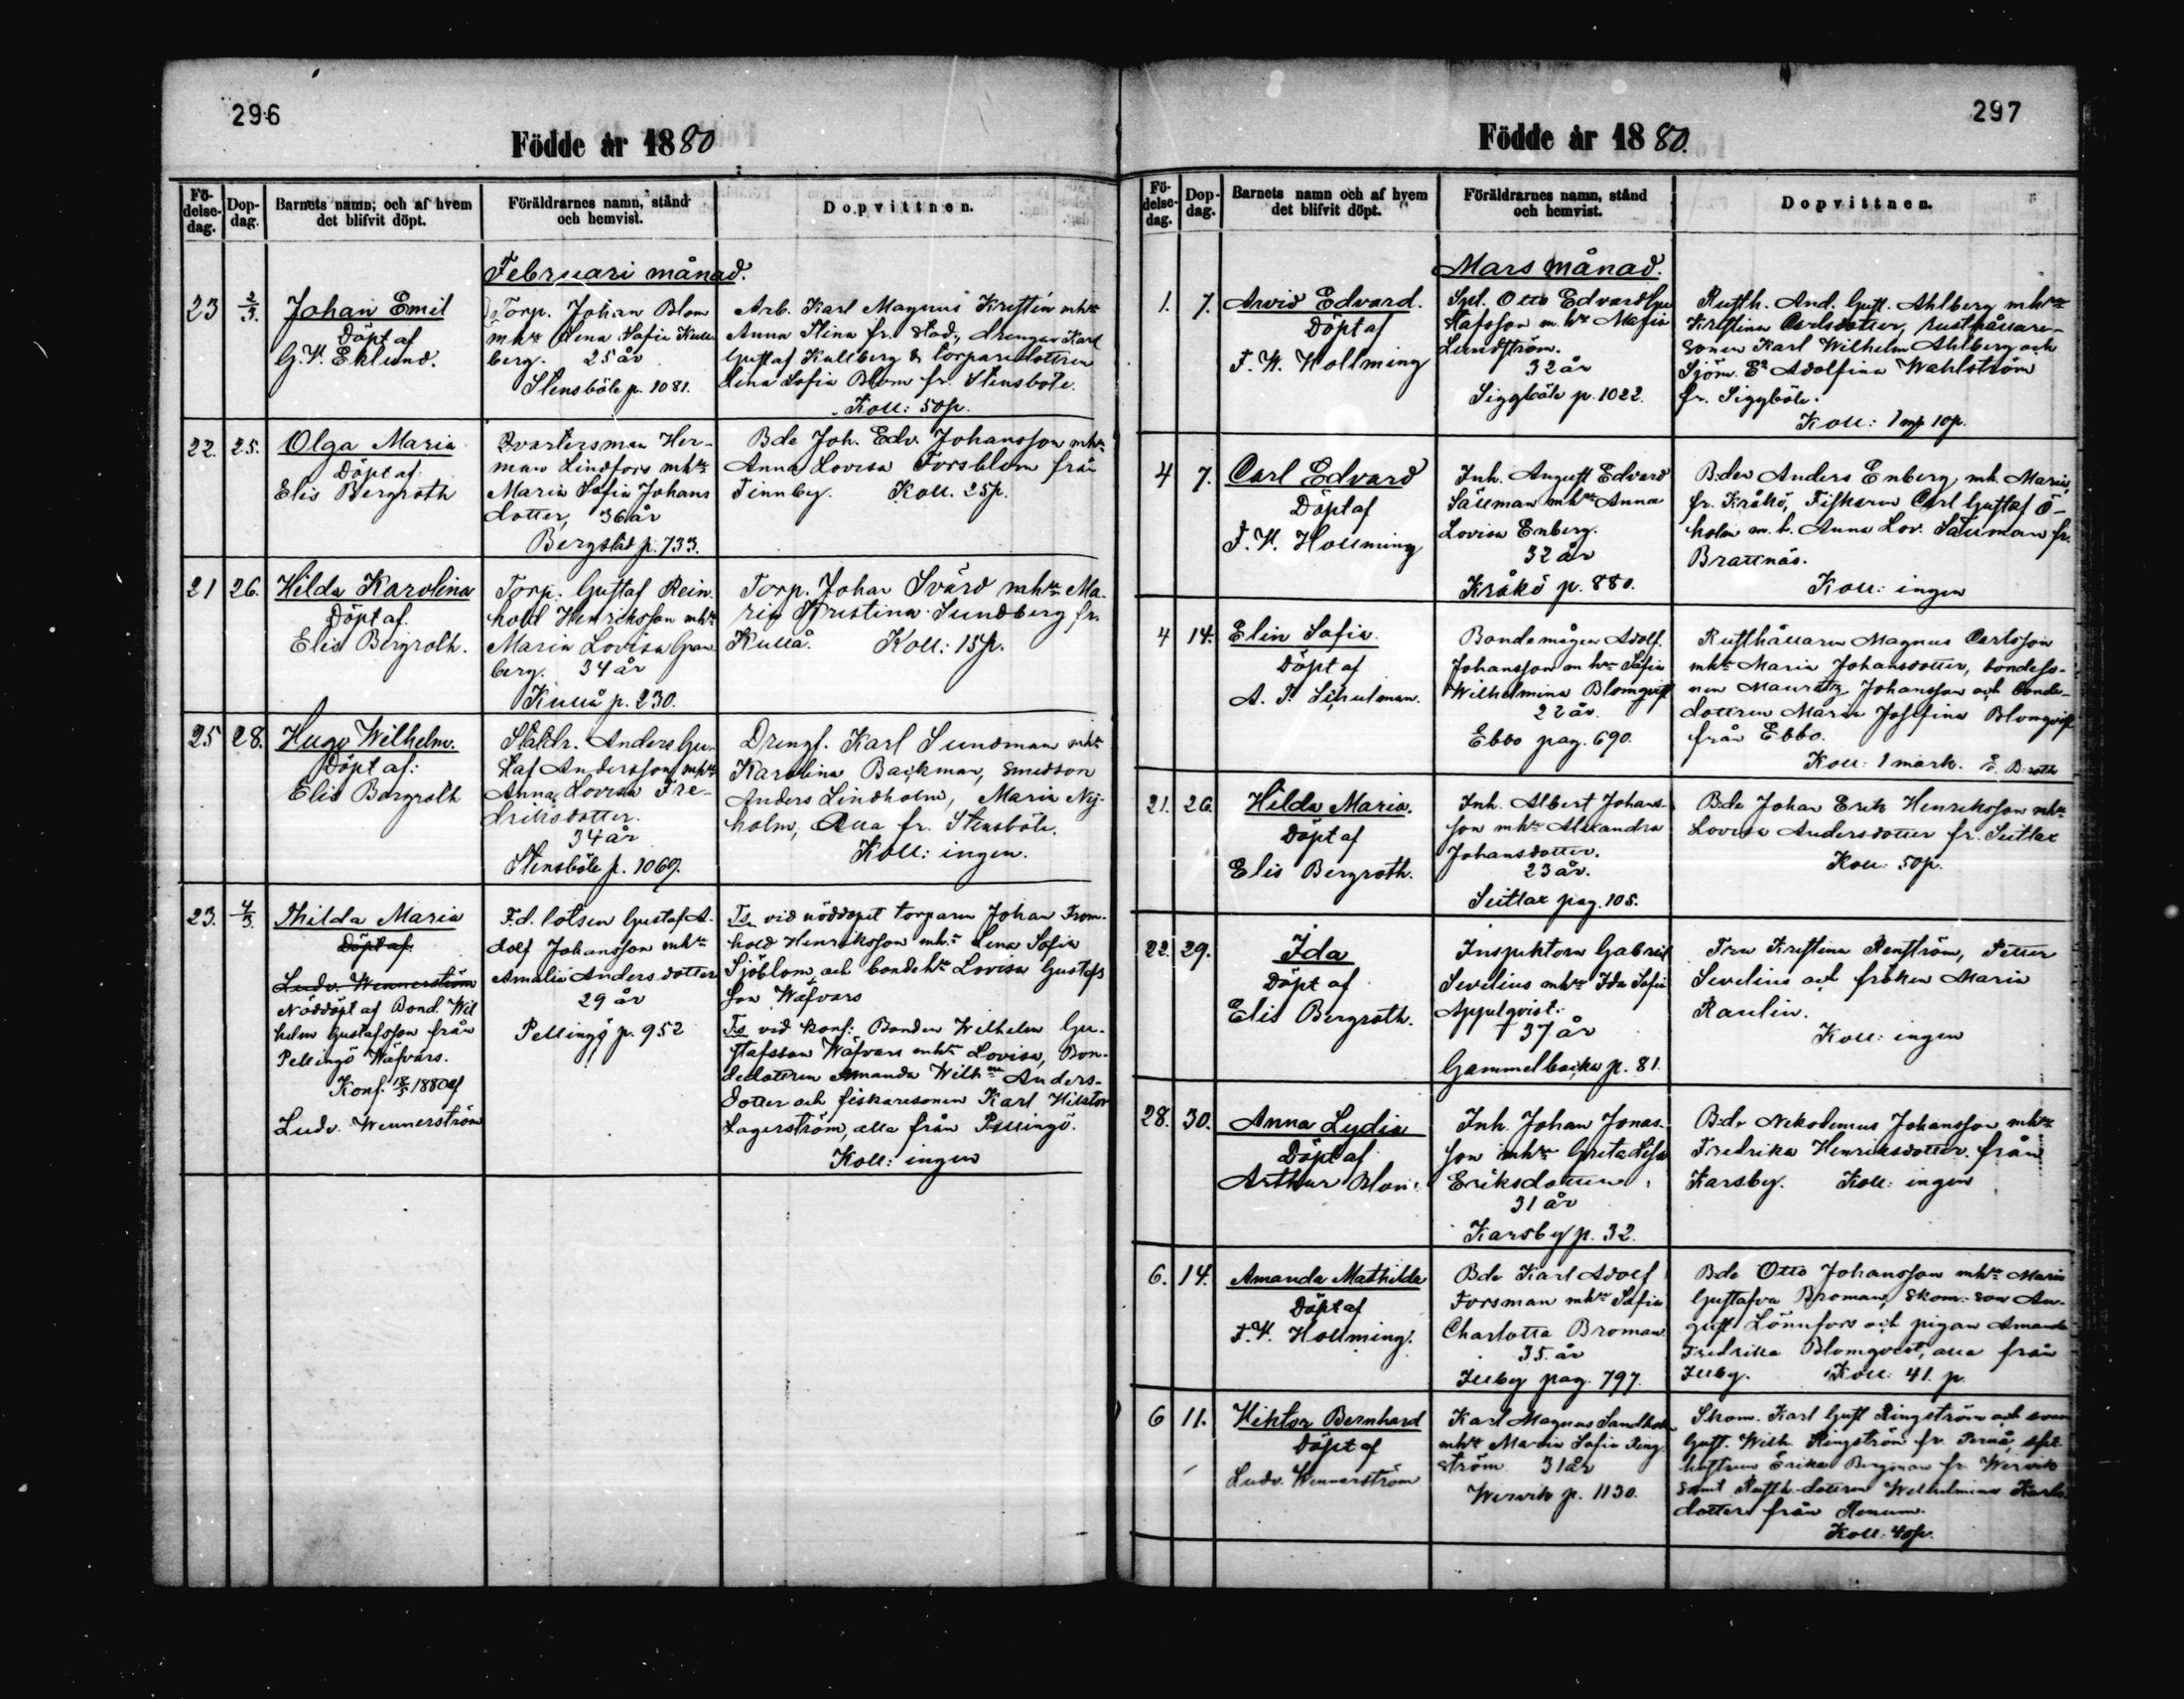 296
Födde år 1880
Fö-
delse-
dag.
Dop-
dag.
Barnets namn, och af hvem
det blifvit döpt.
Föräldrarnes namn, stånd
och hemvist.
Dopvittnen.
Februari månad.
23
2/3.
Johan Emil
Döpt af
G. V. Eklund.
Torp. Johan Blom
mhu Lena Sofia Kull
berg. 25 år
Stensböle p. 1081.
Arb. Karl Magnus Kristén mhu
Anna Stina fr. Stad., drengen Karl
Gustaf Kullberg & torparedottren
Lina Sofia Blom fr. Stensböle.
Koll: 50p.
22.
25.
Olga Maria
Döpt af
Elis Bergroth
Qvartersman Her-
man Lindfors mhu
Maria Sofia Johans
dotter, 36 år
Bergstad p. 733.
Bde Joh. Edv. Johansson mhu
Anna Lovisa Forsblom från
Finnby. Koll. 25p.
21
26.
Hilda Karolina
Döpt af
Elis Bergroth.
Torp. Gustaf Rein
hold Henriksson mhu
Maria Lovisa Gran
berg. 34 år
Kullå p. 230.
Torp. Johan Svärd mhu Ma-
ria Kristina Sundberg fr.
Kullå. Koll: 15p.
25
28.
Hugo Wilhelm.
Döpt af:
Elis Bergroth
Staldr. Anders Gu-
staf Andersson mhu
Anna Lovisa Fre-
driksdotter.
34 år
Stensböle p. 1069.
Drengf. Karl Sundman mhu
Karolina Backman, Smedson
Anders Lindholm, Maria Ny-
holm, Alla fr. Stensböle.
Koll: ingen.
23.
4/3.
Thilda Maria
Döpt af
Ludv. Wennerström
Nöddöpt af Bond. Wil
helm Gustafsson från
Pellinge Wäfvars.
Konf. 18/3 1880 af
Ludv. Wennerström
F.d. lotsen Gustaf A-
dolf Johansson mhu
Amalia Andersdotter
29 år
Pellinge p. 952
Ts. vid nöddopet torparen Johan From-
hold Henriksson mhu Lena Sofia
Sjöblom och bondehu Lovisa Gustafs
son Wäfvars
Ts vid konf: Bonden Wilhelm Gu-
stafsson Wäfvars mhu Lovisa, Bon-
dedottren Amanda Wilhna Anders-
dotter och fiskaresonen Karl Viktor
Lagerström, alla från Pellinge.
Koll: ingen
297
Födde år 1880.
Fö-
delse-
dag.
Dop-
dag.
Barnets namn och af hvem
det blifvit döpt.
Föräldrarnes namn, stånd
och hemvist.
Dopvittnen.
Mars månad.
1.
7.
Arvid Edvard.
Döpt af
F. W. Hollming
Spl. Otto Edvard Gu
stafsson m. hu Maria
Lundström.
32 år
Siggböle p. 1022.
Rusth. And. Gust. Ahlberg mhu
Kristina Carlsdotter, rusthållare-
sonen Karl Wilhelm Ahlberg och
Sjöm. Ea Adolfina Wahlström
fr. Siggböle.
Koll: 1 m 10p.
4
7.
Carl Edvard
Döpt af
F. V. Hollming
Inh. August Edvard
Sällman mhu Anna
Lovisa Enberg.
32 år
Kråkö p. 880.
Bden Anders Enberg mh. Maria
fr. Kråkö, Fiskaren Carl Gustaf Ö-
holm m. h. Anna Lov. Sällman fr.
Brattnäs.
Koll: ingen
4
14.
Elin Sofia.
Döpt af
A. T. Schulman.
Bondemågen Adolf
Johansson m hu Sofia
Wilhelmina Blomqvist
22 år.
Ebbo pag. 690.
Rusthållaren Magnus Carlsson
mhu Maria Johansdotter, bondeso-
nen Mauritz Johansson och bonde-
dottren Maria Josefina Blomqvist
från Ebbo.
Koll: 1 mark.
21.
26.
Hilda Maria.
Döpt af
Elis Bergroth.
Inh. Albert Johans-
son mhu Alexandra
Johansdotter.
23 år.
Seitlax pag. 105.
Bde Johan Erik Henriksson mhu
Lovisa Andersdotter fr. Seitlax
Koll: 50p.
22.
29.
Ida
Döpt af
Elis Bergroth.
Inspektorn Gabriel
Sevelius mhu Ida Sofia
Appelqvist.
37 år
Gammelbacka p. 81.
Fru Kristina Renström, Petter
Sevelius och fröken Maria
Raulin.
Koll: ingen
28.
30.
Anna Lydia
Döpt af
Arthur Blom
Inh. Johan Jonas-
son mhu Greta Lisa
Eriksdotter
31 år
Karsby p. 32.
Bde Nikodemus Johansson mhu
Fredrika Henriksdotter från
Karsby. Koll: ingen
6.
14.
Amanda Mathilda
Döpt af
F. V. Hollming.
Bde Karl Adolf
Forsman mhu Sofia
Charlotta Broman
35 år
Illby pag. 797.
Bde Otto Johansson mhu Maria
Gustafva Broman, skom. son Au-
gust Lönnfors och pigan Amanda
Fredrika Blomqvist, alla från
Illby. Koll: 41 p.
6
11.
Viktor Bernhard
Döpt af
Ludv. Wennerström
Karl Magnus Sandholm
mhu Maria Sofia Ring
ström 31 år
Wervik p. 1130.
Skom. Karl Gust Ringström och
Gust. Wilh. Ringström fr. Pernå,
hustrun Erika Bergman fr. Wervik
samt Rusth. dottren Wilhelmina Karls
dotter från
Koll: 40p.